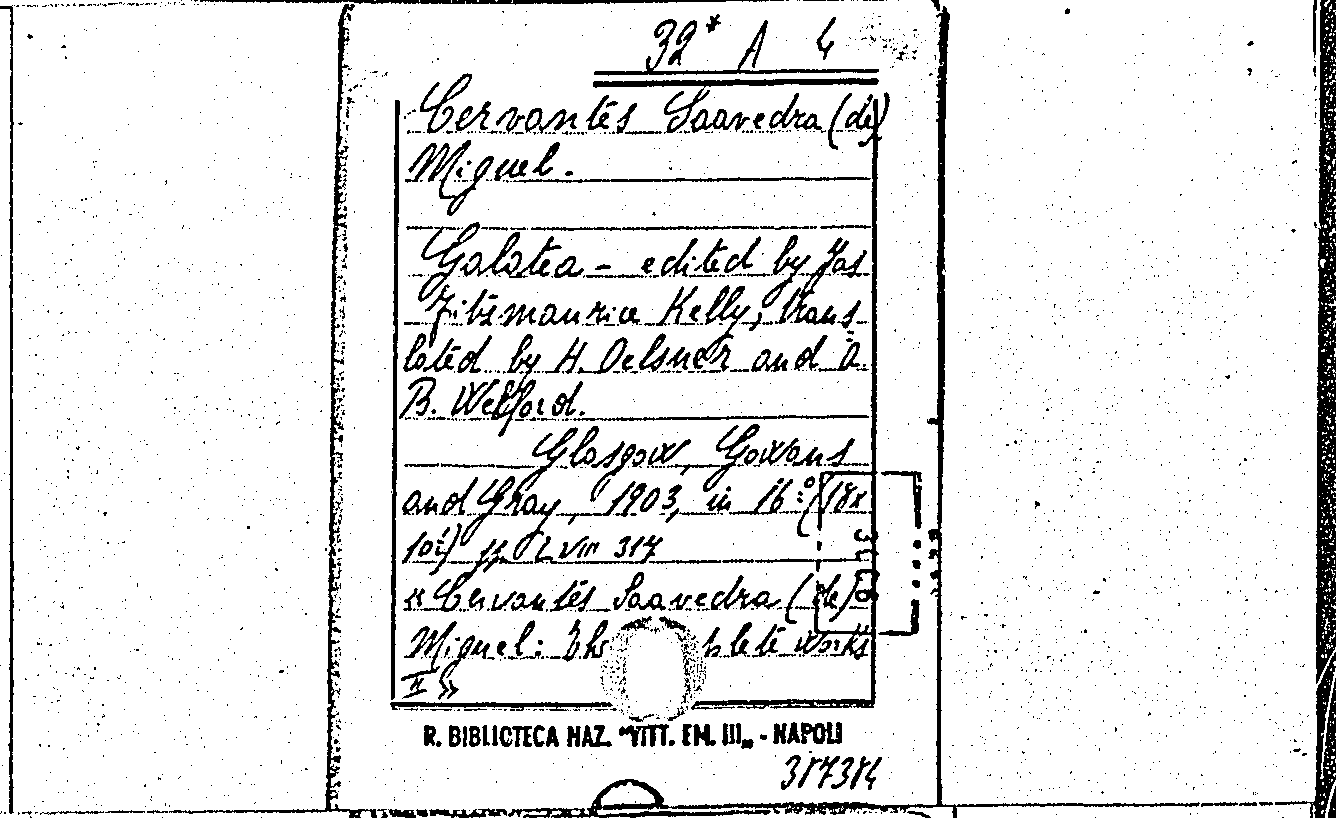 32* A 4
Cervantes Saavedra (de)
Miguel.
Galatea - edited by Jas
Fitzmaurice Kelly, trans
lated by H. Oelsner and A.
B. Welford.
Glasgow, Gowans
and Gray, 1903, in 16º (18x
10) pp. L VIII 317
« Cervantes Saavedra (de)
Miguel: The plete works
II »
R. BIBLIOTECA NAZ. "VITT. EM. III„ - NAPOLI
387384